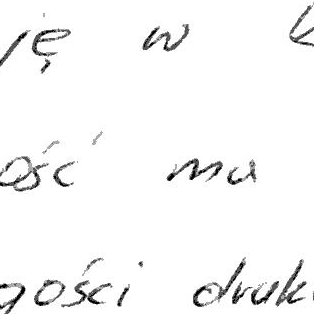 ję w
ość ma
gości druk